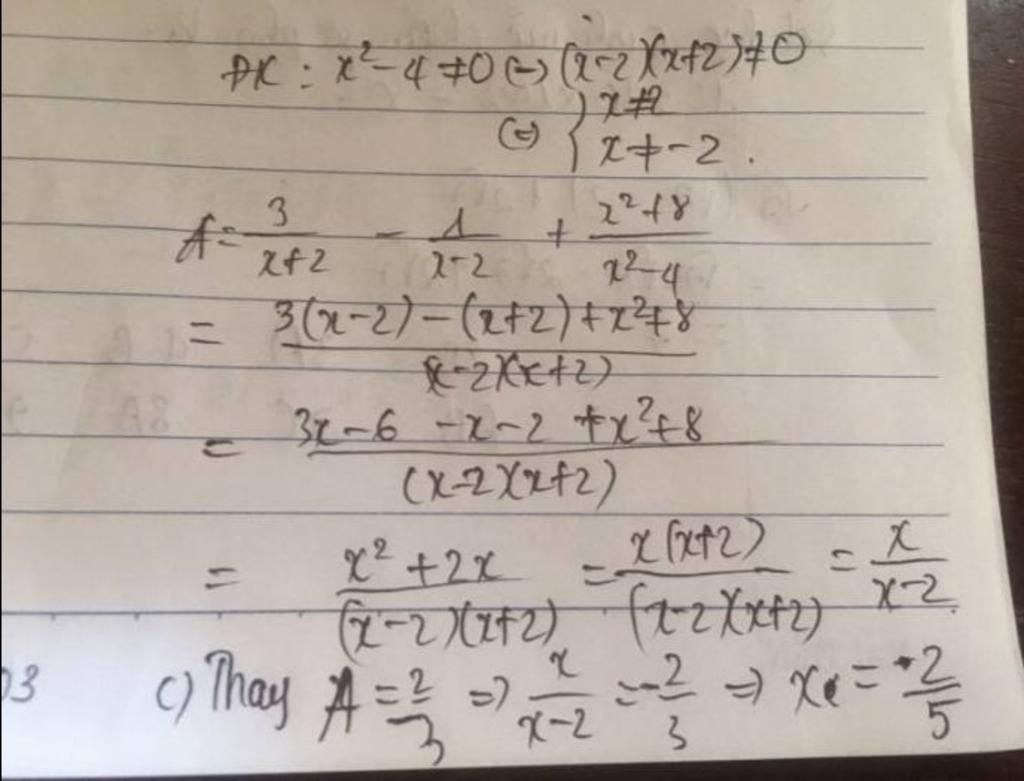 ĐK : x² - 4 ≠ 0 (=) (x-2)(x+2) ≠ 0
(=) { x ≠ 2
x ≠ -2 .
A = 3/(x+2) - 1/(x-2) + (x²+8)/(x²-4)
= (3(x-2) - (x+2) + x²+8)/((x-2)(x+2))
= (3x-6 -x-2 +x²+8)/((x-2)(x+2))
= (x²+2x)/((x-2)(x+2)) = x(x+2)/((x-2)(x+2)) = x/(x-2).
03 c) Thay A = 2/3 => x/(x-2) = -2/3 => x = 2/5